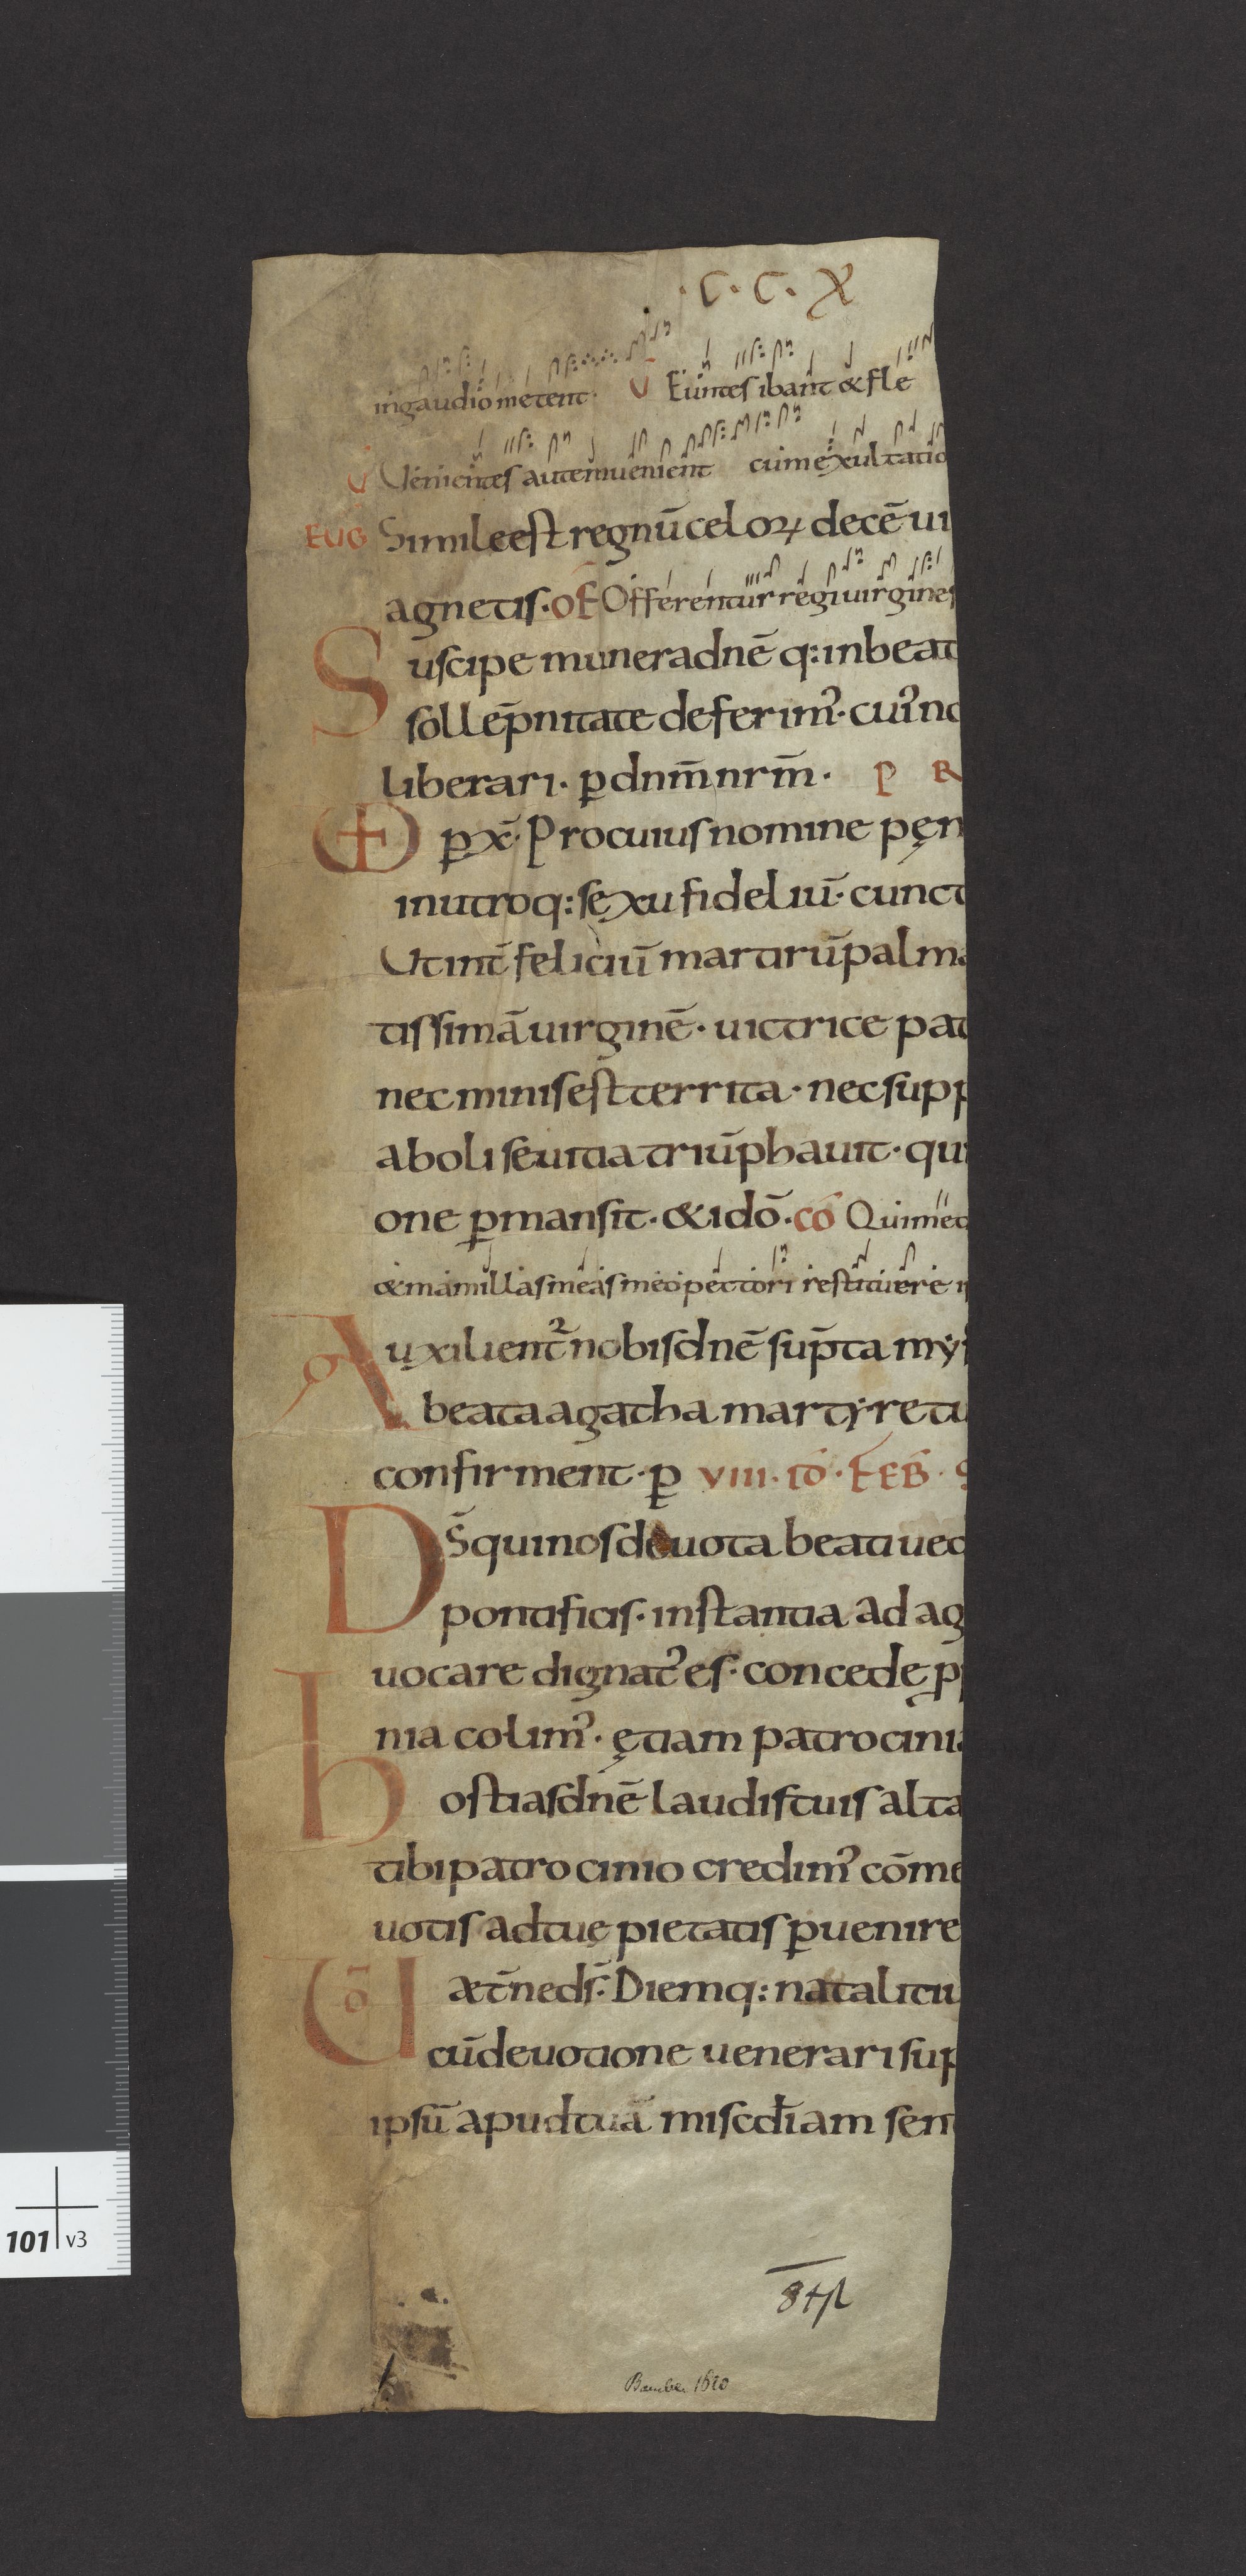 ·C·C·X
ingaudio metent· V̄ Euntes ibant & fle
V̄ Uenientes autem uenient cum exultatio
EUG Simile est regnū celoꝝ decē ui
agnetis· OF Offerentur regi uirgines
Suscipe munera dnē q: in beat
sollēpnitate deferim᾽· cui᾽ na
liberari· ꝑ dnm̄ nrm̄· P R
VD ꝑ xp̄· Pro cuius nomine pęn
in utroq: sexu fideliū· cunct
Ut int̄ feliciū martirū palma
tissimā uirginē· uictrice pat
nec minis est territa· nec supp
aboli seuitia triūphauit· qui
one ꝑmansit· & idō· cō Qui me d
& mamillas meas meo pectori restituere i
Auxilient᷑ nobis dnē sūpta myſ
beata agatha martyre tu
confirment· ꝑ VIII· ID· FEB· S
Ds̄ qui nos deuota beati ued
pontificis· instantia ad ag
uocare dignat᾽ es· concede p
nia colim᾽· ętiam patrocinia
hostias dnē laudis tuis alta
tibi patrocinio credim᾽ cōme
uotis ad tuę pietatis ꝑuenire
UD æt̄ne ds̄· Diemq: natalitiu
cū deuotione uenerari sup
ipsū apud tuā miscd̄iam sen
101 v3